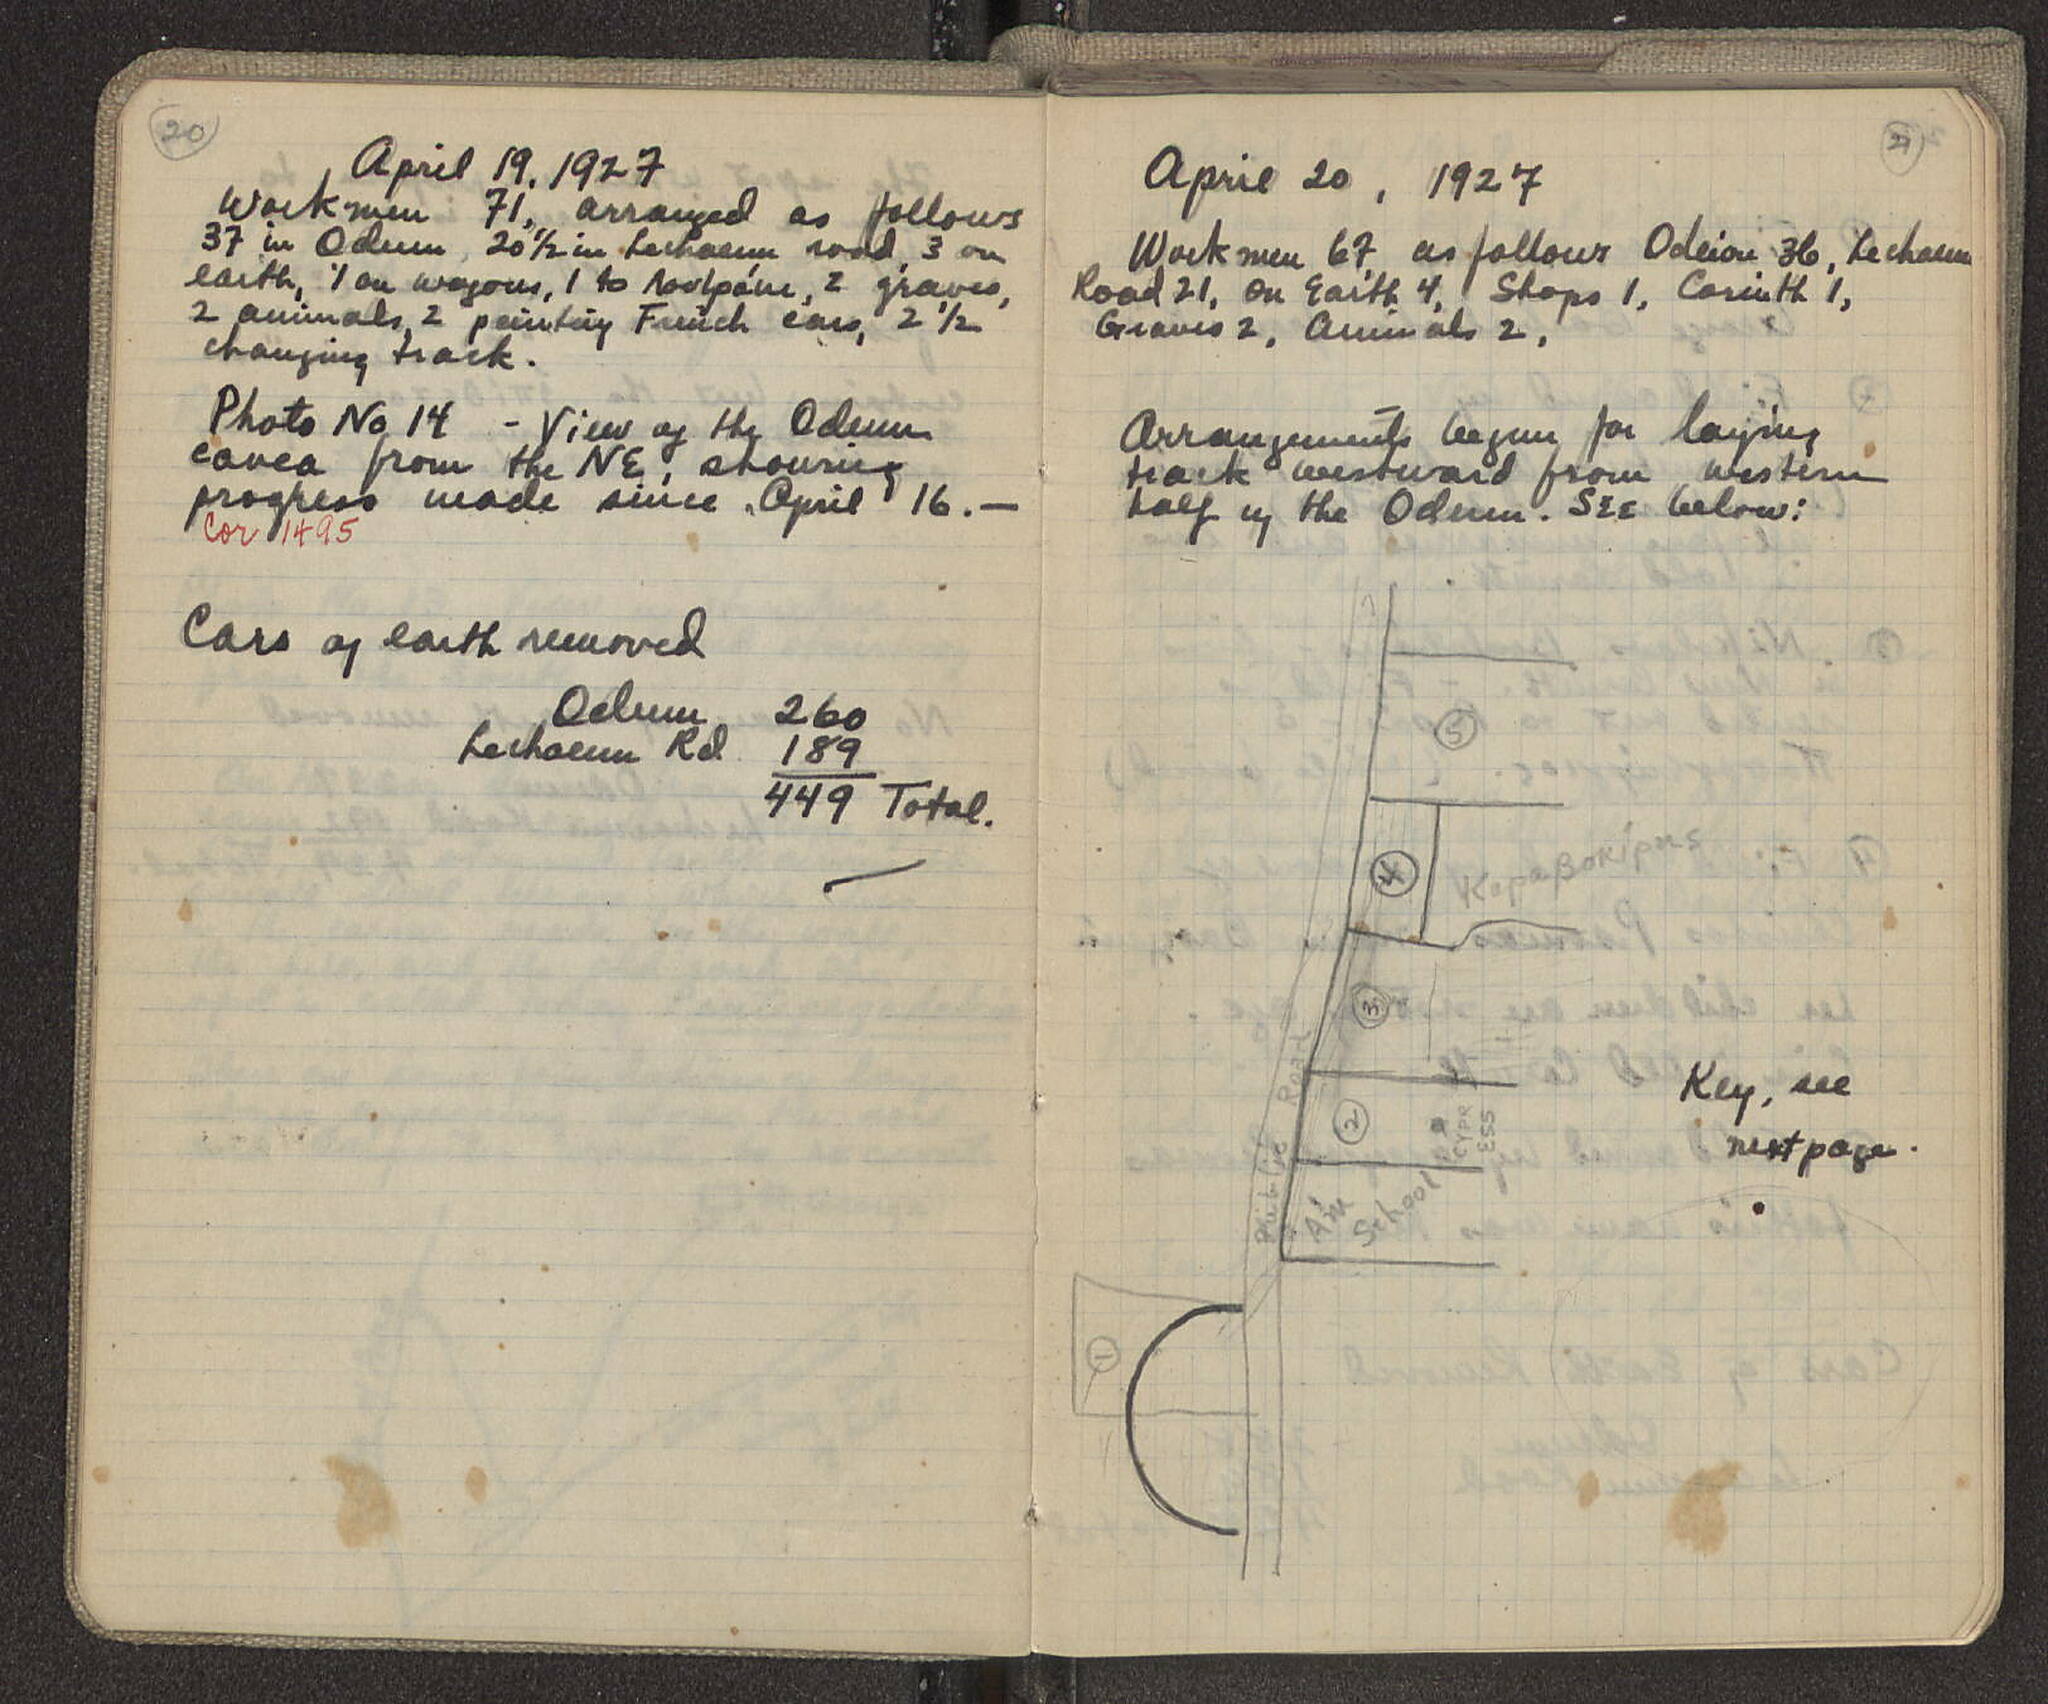 20
April 19, 1927
Workmen 71, arranged as follows
37 in Odeum, 20 1/2 in Lechaeum road, 3 on
earth, 1 on wagons, 1 to , 2 graves,
2 animals, 2 painting French cars, 2 1/2
changing track.
Photo No 14 - View of the Odeum
cavea from the NE, showing
progress made since April 16.—
Cor 1495
Cars of earth removed
Odeum 260
Lechaeum Rd 189
449 Total.
21
April 20, 1927
Workmen 67, as follows Odeion 36, Lechaeum
Road 21, on Earth 4, Shops 1, Corinth 1,
Graves 2, Animals 2.
Arrangements begun for laying
track westward from western
half of the Odeum. SEE below:
5
4
Καραβοκίρης
3
2
CYPR
ESS
Public Road
Am
School
Key, see
next page.
1